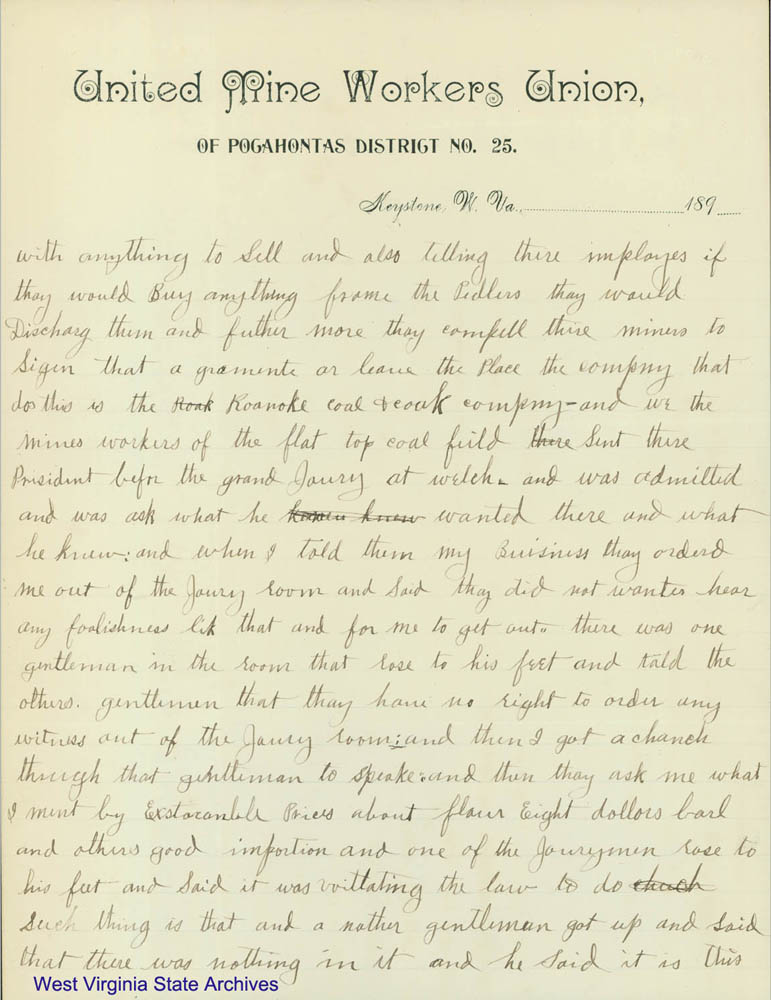 United Mine Workers Union,
OF POCAHONTAS DISTRICT NO. 25.
Keystone, W. Va., 189
with anything to Sell and also telling there imployes if
thay would Buy anything frome the Pedlers thay would
Discharg them and futher more thay compell there miners to
Sigen that a gramente or leave the Place the compny that
dos this is the Roak Roanoke coal & coak compmy - and we the
mines workers of the flat top coal fuild there Sent there
President befor the grand Joury at welch. and was admitted
and was ask what he knew wanted there and what
he knew: and when I told them my Buisness thay orderd
me out of the Joury room and Said thay did not wanter hear
any foolishness lik that and for me to get out.. there was one
gentleman in the room that rose to his feet and told the
others. gentlemen that thay have no right to order any
witness out of the Joury room: and then I got a chanch
through that gentleman to Speake: and then thay ask me what
I ment by Exstoranble Prices about flour Eight dollors barl
and others good importion and one of the Jourymen rose to
his feet and Said it was voittating the law to do chuch
Such thing is that and a nather gentleman got up and Said
that there was nothing in it and he Said it is this
West Virginia State Archives